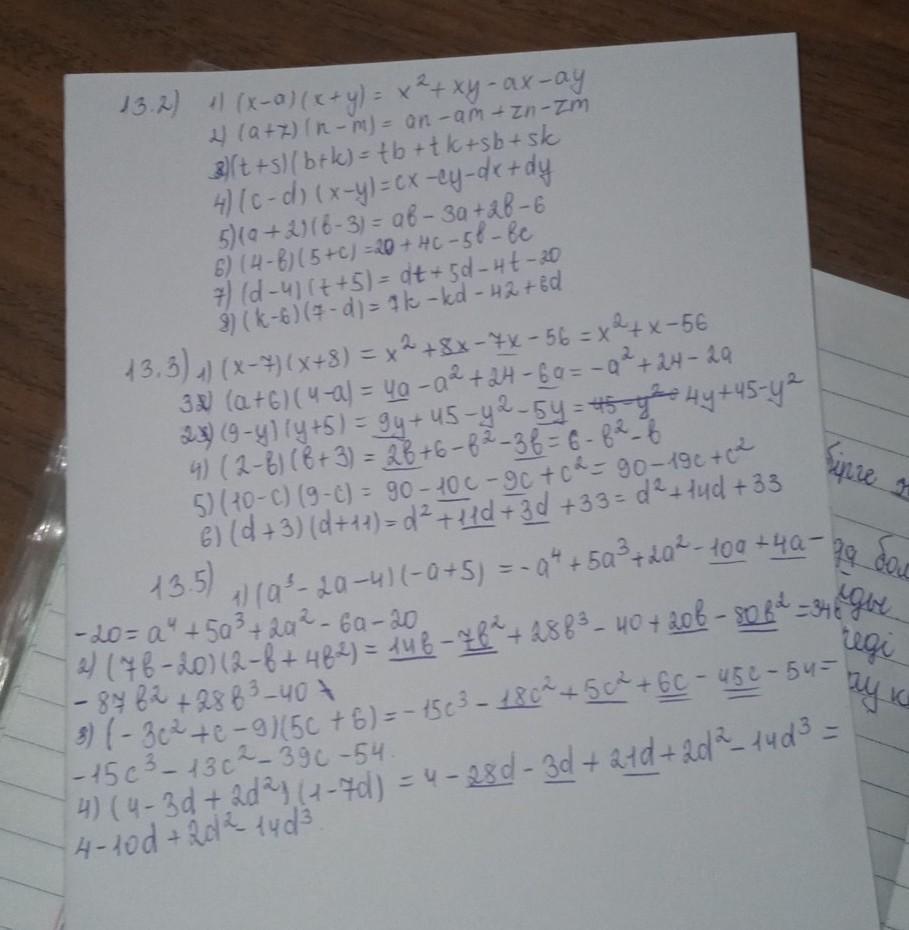 13.2) 1) (x-a)(x+y) = x² + xy - ax - ay
2) (a+z)(n-m) = an - am + zn - zm
3) (t+s)(b+k) = tb + tk + sb + sk
4) (c-d)(x-y) = cx - cy - dx + dy
5) (a+2)(b-3) = ab - 3a + 2b - 6
6) (4-b)(5+c) = 20 + 4c - 5b - bc
7) (d-4)(t+5) = dt + 5d - 4t - 20
8) (k-6)(7-d) = 7k - kd - 42 + 6d
13.3) 1) (x-7)(x+8) = x² + 8x - 7x - 56 = x² + x - 56
3) (a+6)(4-a) = 4a - a² + 24 - 6a = -a² + 24 - 2a
2) (9-y)(y+5) = 9y + 45 - y² - 5y = 45 - y² 4y + 45 - y²
4) (2-b)(b+3) = 2b + 6 - b² - 3b = 6 - b² - b
5) (10-c)(9-c) = 90 - 10c - 9c + c² = 90 - 19c + c²
6) (d+3)(d+11) = d² + 11d + 3d + 33 = d² + 14d + 33
13.5) 1) (a³ - 2a - 4)(-a+5) = -a⁴ + 5a³ + 2a² - 10a + 4a -
-20 = a⁴ + 5a³ + 2a² - 6a - 20
2) (7b - 20)(2 - b + 4b²) = 14b - 7b² + 28b³ - 40 + 20b - 80b² = 34b
- 87b² + 28b³ - 40
3) (-3c² + c - 9)(5c + 6) = -15c³ - 18c² + 5c² + 6c - 45c - 54 =
-15c³ - 13c² - 39c - 54.
4) (4 - 3d + 2d²)(1 - 7d) = 4 - 28d - 3d + 21d + 2d² - 14d³ =
4 - 10d + 2d² - 14d³.